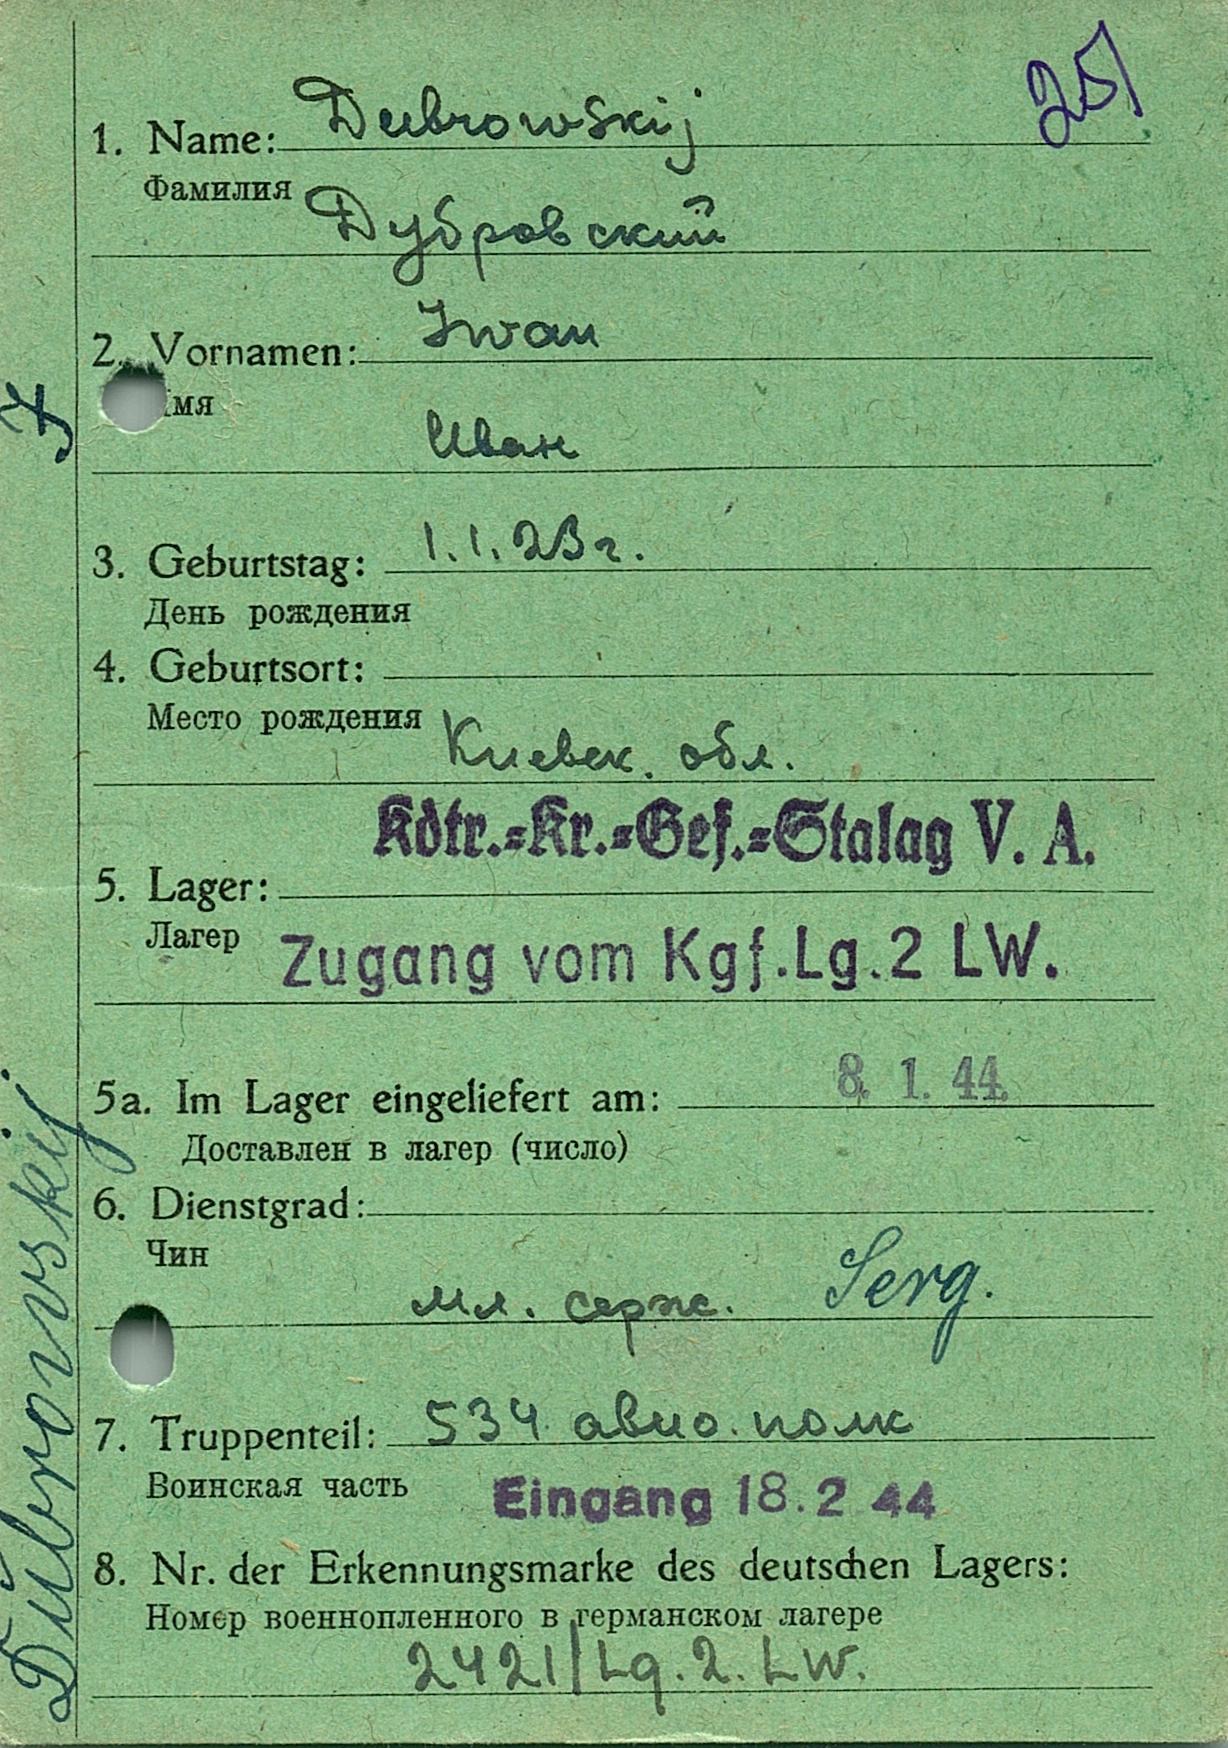 25/
1. Name: Dubrowskij
Фамилия
Дубровский
2. Vornamen: Iwan
Имя
Иван
3. Geburtstag: 1.1.23 г.
День рождения
4. Geburtsort:
Место рождения
Киевск. обл.
Kdtr.=Kr.=Gef.=Stalag V. A.
5. Lager:
Лагер
Zugang vom Kgf.Lg.2 LW.
5a. Im Lager eingeliefert am: 8. 1. 44.
Доставлен в лагер (число)
6. Dienstgrad:
Чин
мл. серж. Serg.
7. Truppenteil: 534 авио. полк
Воинская часть
Eingang 18.2 44
8. Nr. der Erkennungsmarke des deutschen Lagers:
Номер военнопленного в германском лагере
2421/Lg. 2. LW.
Dŭbrovskij